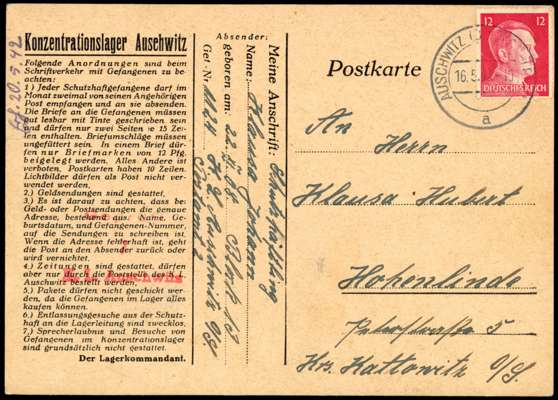 Konzentrationslager Auschwitz
Folgende Anordnungen sind beim
Schriftverkehr mit Gefangenen zu be-
achten:
1.) Jeder Schutzhaftgefangene darf im
Monat zweimal von seinen Angehörigen
Post empfangen und an sie absenden.
Die Briefe an die Gefangenen müssen
gut lesbar mit Tinte geschrieben sein
und dürfen nur zwei Seiten je 15 Zei-
len enthalten. Briefumschläge müssen
ungefüttert sein. In einem Brief dür-
fen nur Briefmarken von 12 Pfg.
beigelegt werden. Alles Andere ist
verboten. Postkarten haben 10 Zeilen.
Lichtbilder dürfen als Post nicht ver-
wendet werden.
2.) Geldsendungen sind gestattet.
3.) Es ist darauf zu achten, dass bei
Geld- oder Postsendungen die genaue
Adresse, bestehend aus Name, Ge-
burtsdatum, und Gefangenen-Nummer,
auf die Sendungen zu schreiben ist.
Wenn die Adresse fehlerhaft ist, geht
die Post an den Absender zurück oder
wird vernichtet.
4.) Zeitungen sind gestattet, dürfen
aber nur durch die Poststelle des K. L.
Auschwitz bestellt werden.
5.) Pakete dürfen nicht geschickt wer-
den, da die Gefangenen im Lager alles
kaufen können.
6.) Entlassungsgesuche aus der Schutz-
haft an die Lagerleitung sind zwecklos.
7.) Sprecherlaubnis und Besuche von
Gefangenen im Konzentrationslager
sind grundsätzlich nicht gestattet.
Der Lagerkommandant.
20.5.42
Absender:
Meine Anschrift: Schutzhäftling
Name: Klausa Johann
geboren am: 22.
Gef.-Nr. Block
Auschwitz O/S.
Postamt 2
Postkarte
AUSCHWITZ
16.5.
a
12 12
DEUTSCHES REICH
An Herrn
Klausa Hubert
Hohenlinde
5
Krs. Kattowitz O/S.